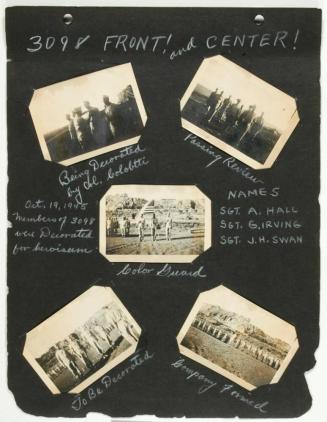 3098 FRONT! and CENTER!
Being Decorated
by Col. Colobtti
Passing Review
Oct. 19, 1945
Members of 3098
were Decorated
for heroism
NAMES
SGT. A. HALL
SGT. G. IRVING
SGT. J. H. SWAN
Color Guard
To Be Decorated
Company Formed